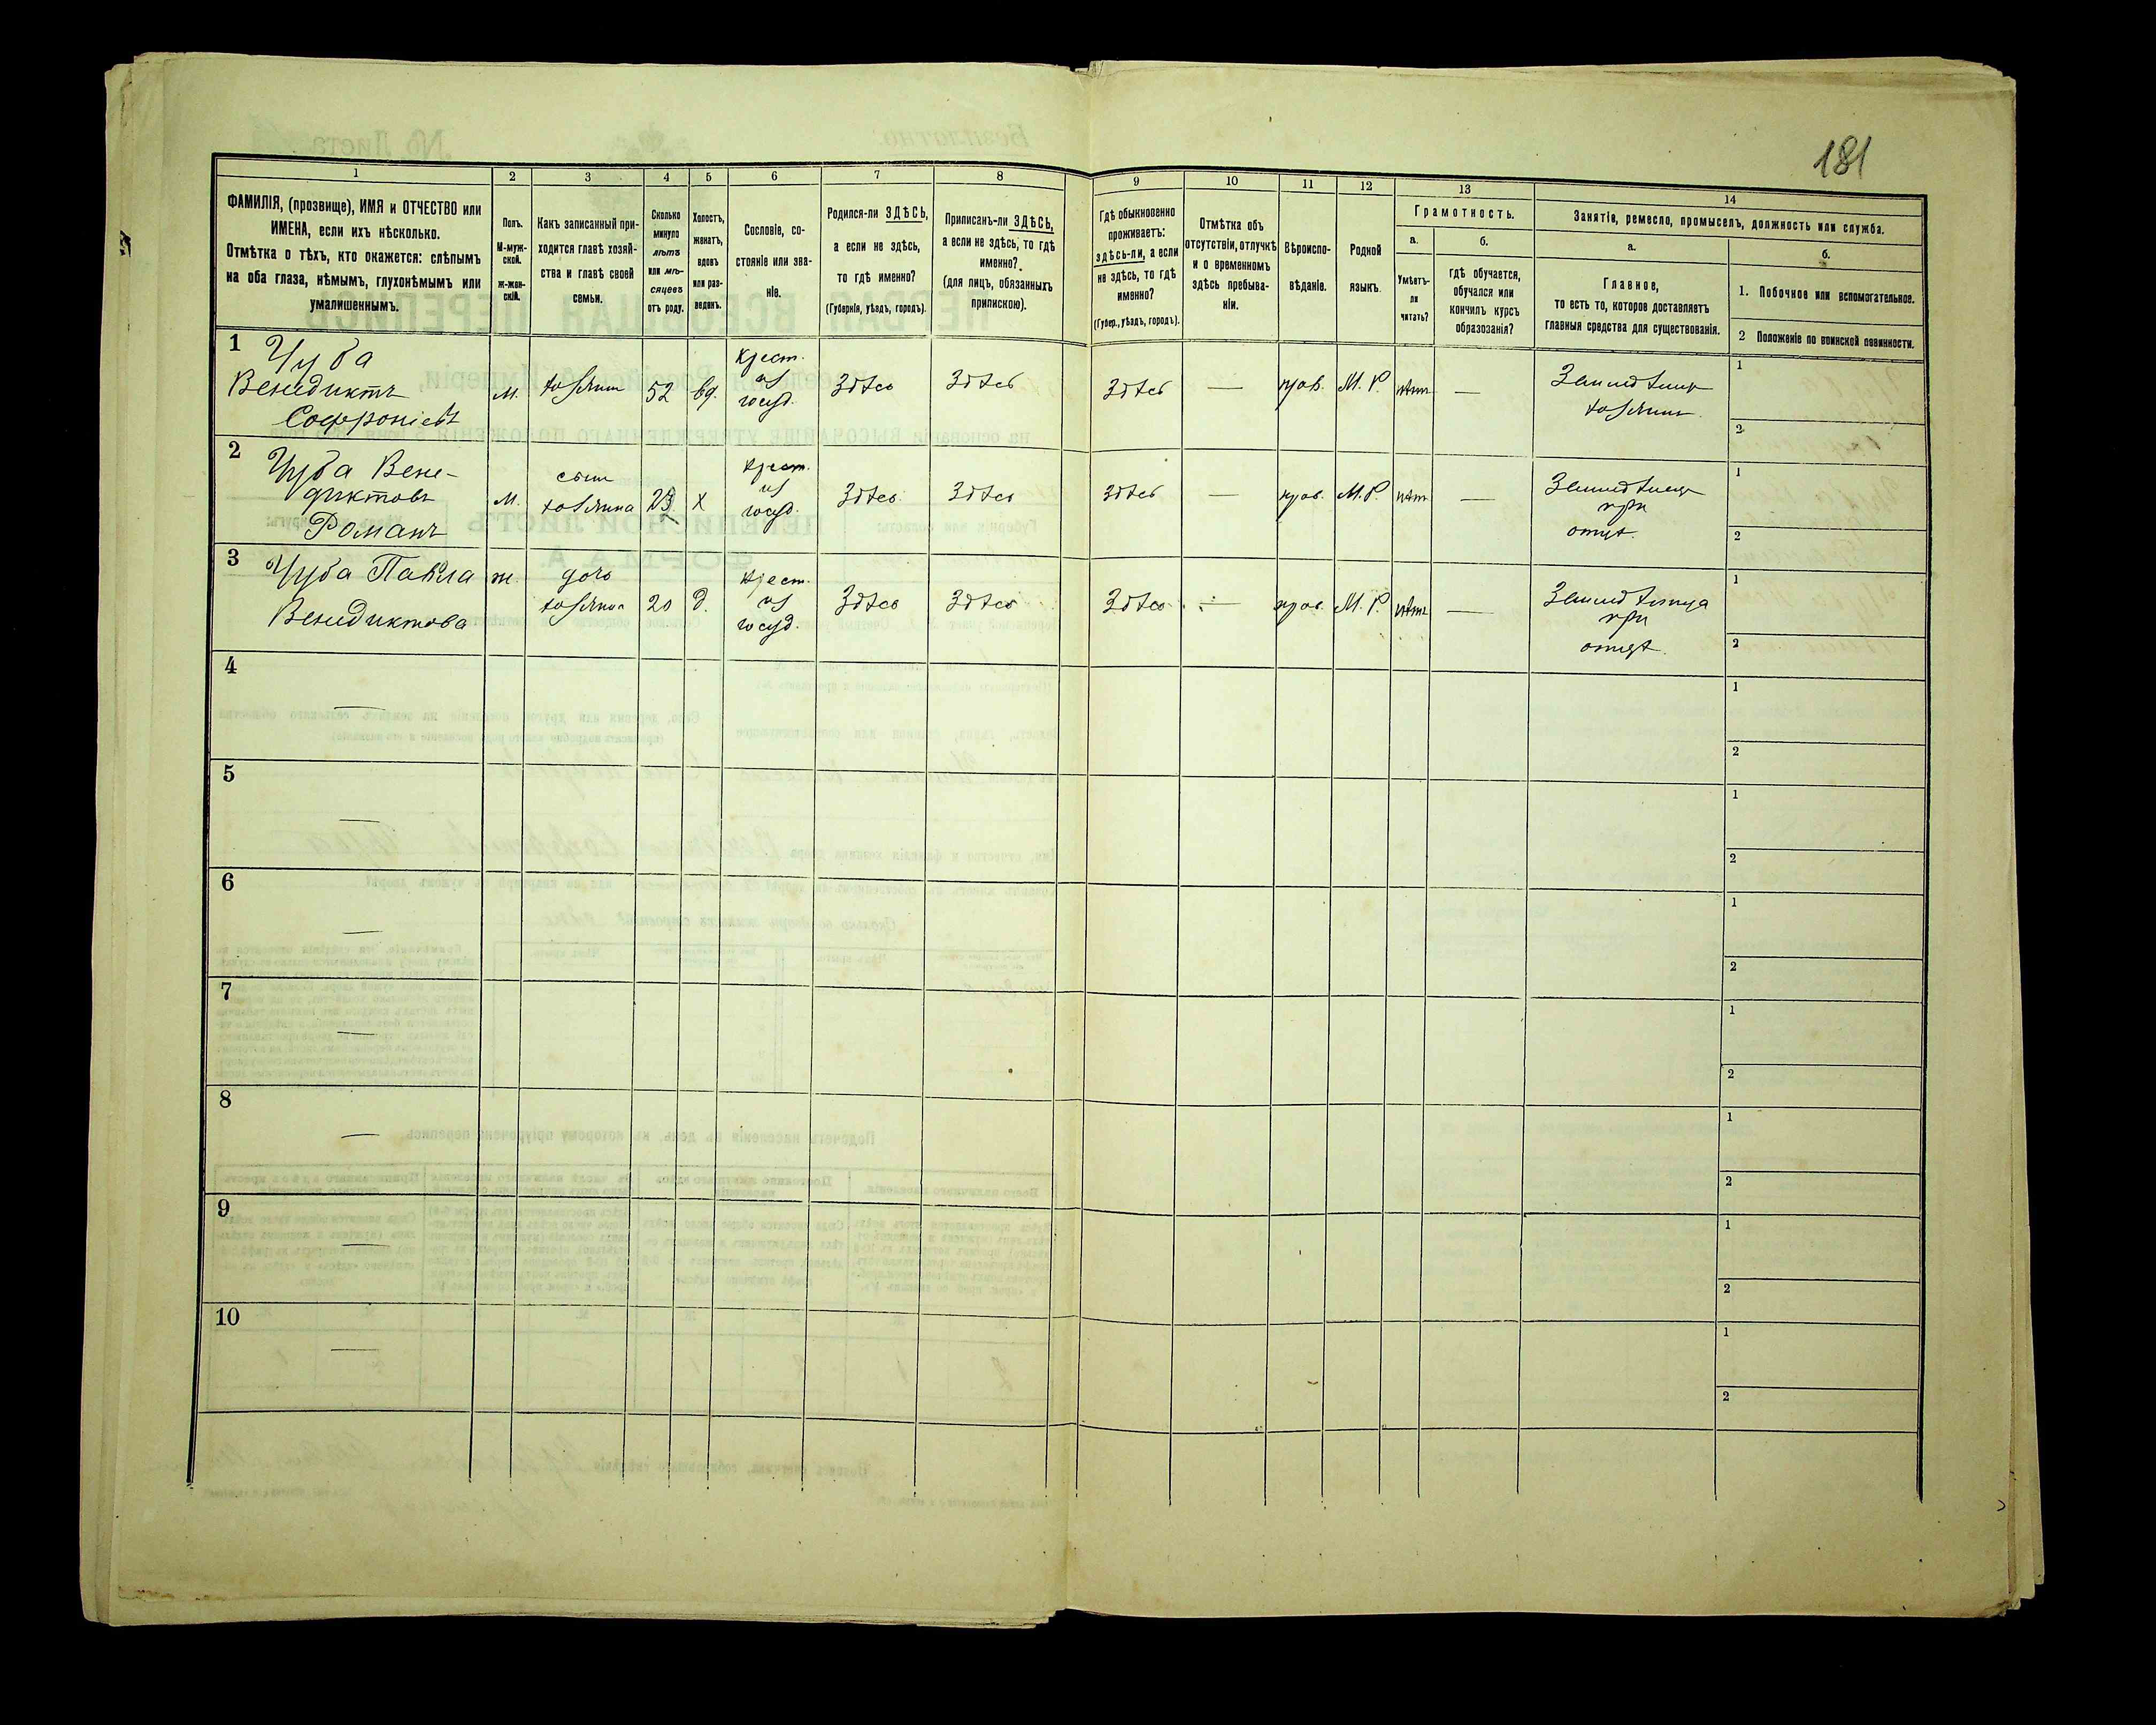 181
1 2 3 4 5 6 7 8 9 10 11 12 13 14
ФАМИЛІЯ, (прозвище), ИМЯ и ОТЧЕСТВО или
ИМЕНА, если ихъ нѣсколько.
Отмѣтка о тѣхъ, кто окажется: слѣпымъ
на оба глаза, нѣмымъ, глухонѣмымъ или
умалишеннымъ.
Полъ.
М-муж-
ской.
ж-жен-
скій.
Какъ записанный при-
ходится главѣ хозяй-
ства и главѣ своей
семьи.
Сколько
минуло
лѣтъ
или мѣ-
сяцевъ
отъ роду.
Холостъ,
женатъ,
вдовъ
или раз-
веденъ.
Сословіе, со-
стояніе или зва-
ніе.
Родился-ли ЗДѢСЬ,
а если не здѣсь,
то гдѣ именно?
(Губернія, уѣздъ, городъ).
Приписанъ-ли ЗДѢСЬ,
а если не здѣсь, то гдѣ
именно?
(для лицъ, обязанныхъ
припискою).
Гдѣ обыкновенно
проживаетъ:
здѣсь-ли, а если
не здѣсь, то гдѣ
именно?
(Губер., уѣздъ, городъ).
Отмѣтка объ
отсутствіи, отлучкѣ
и о временномъ
здѣсь пребыва-
ніи.
Вѣроиспо-
вѣданіе.
Родной
языкъ.
Грамотность.
а.
Умѣетъ-
ли
читать?
б.
Гдѣ обучается,
обучался или
кончилъ курсъ
образованія?
Занятіе, ремесло, промыселъ, должность или служба.
а.
Главное,
то есть то, которое доставляетъ
главныя средства для существованія.
б.
1. Побочное или вспомогательное.
2 Положеніе по воинской повинности.
1 Чуба
Венедиктъ
Софроніевъ
м.
хозяинъ
52
вд.
крест.
из
госуд.
Здѣсь
Здѣсь
Здѣсь
—
прав.
М. Р.
нѣтъ
—
Земледѣлец
хозяинъ.
1
2
2 Чуба Вене-
диктовъ
Романъ
м.
сынъ
хозяина
23
х
крест.
из
госуд.
Здѣсь
Здѣсь
Здѣсь
—
прав.
М. Р.
нѣт
—
Земледѣлец
при
отцѣ.
1
2
3 Чуба Павла
Венедиктова
ж.
дочь
хозяина
20
д.
крест.
из
госуд.
Здѣсь
Здѣсь
Здѣсь
—
прав.
М. Р.
нѣтъ
—
Земледѣлица
при
отцѣ.
1
2
4
—
1
2
5
—
1
2
6
—
1
2
7
—
1
2
8
—
1
2
9
—
1
2
10
—
1
2